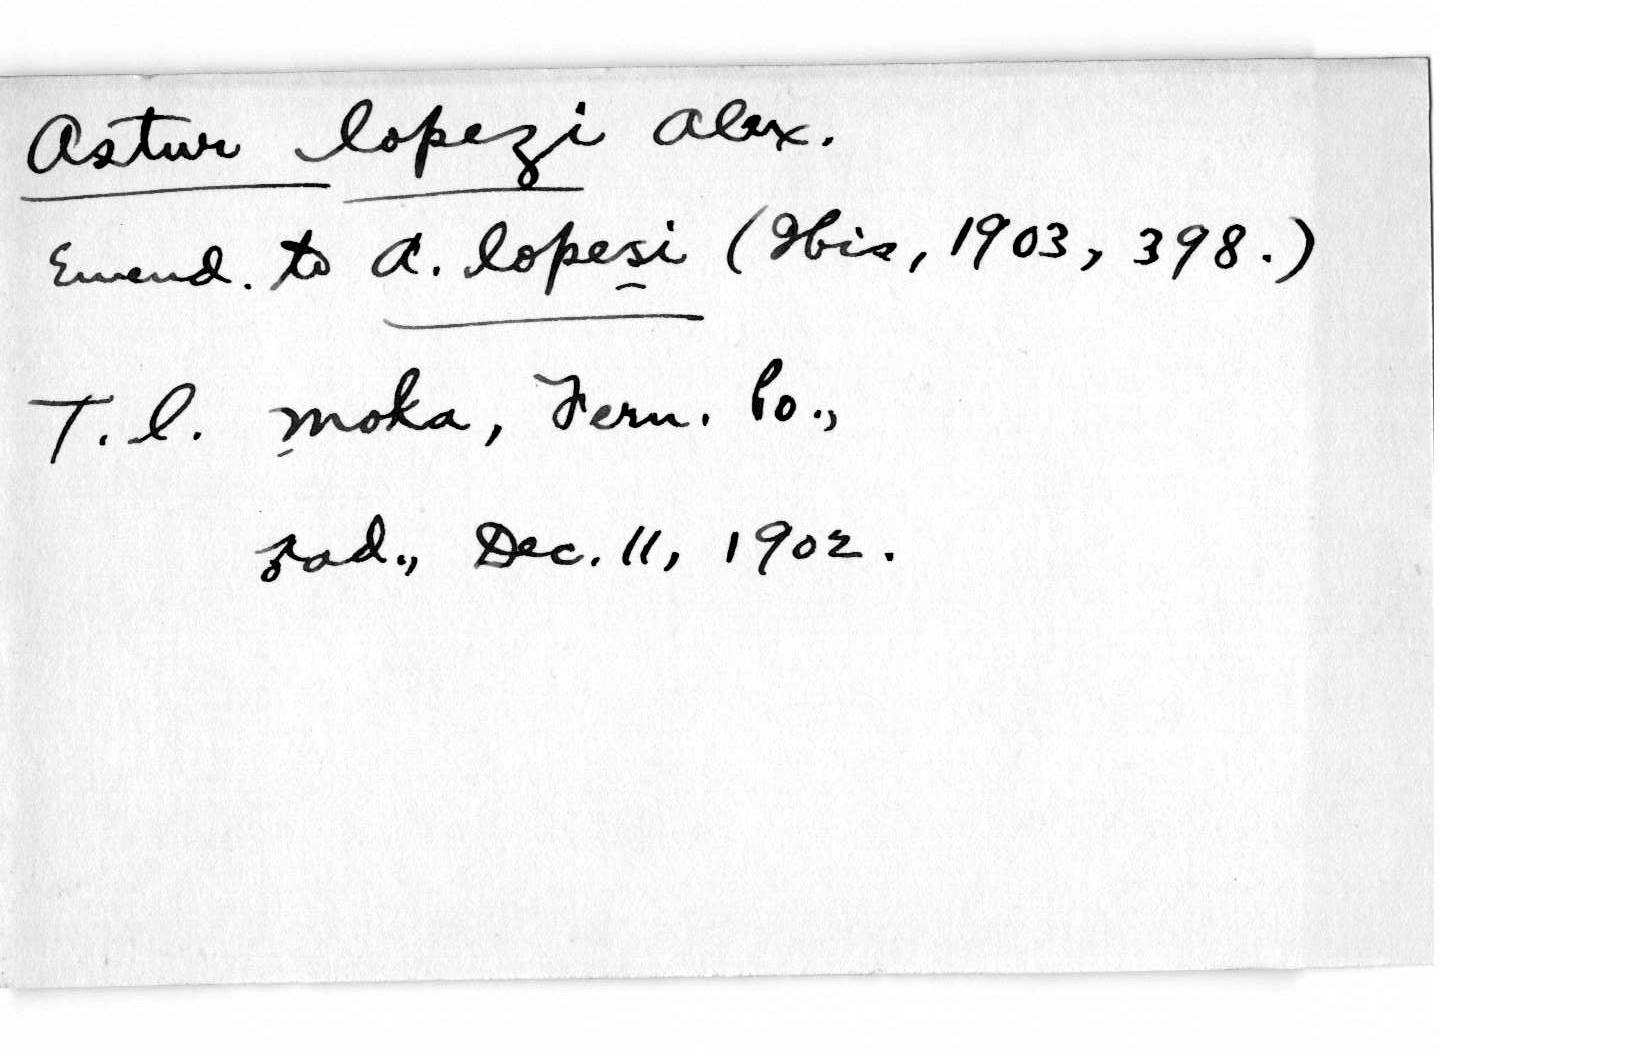 Astur lopezi Alex.
Emend. to A. lopesi (Ibis, 1903, 398.)
T.l. Moka, Fern. Po.,
♀ad., Dec. 11, 1902.